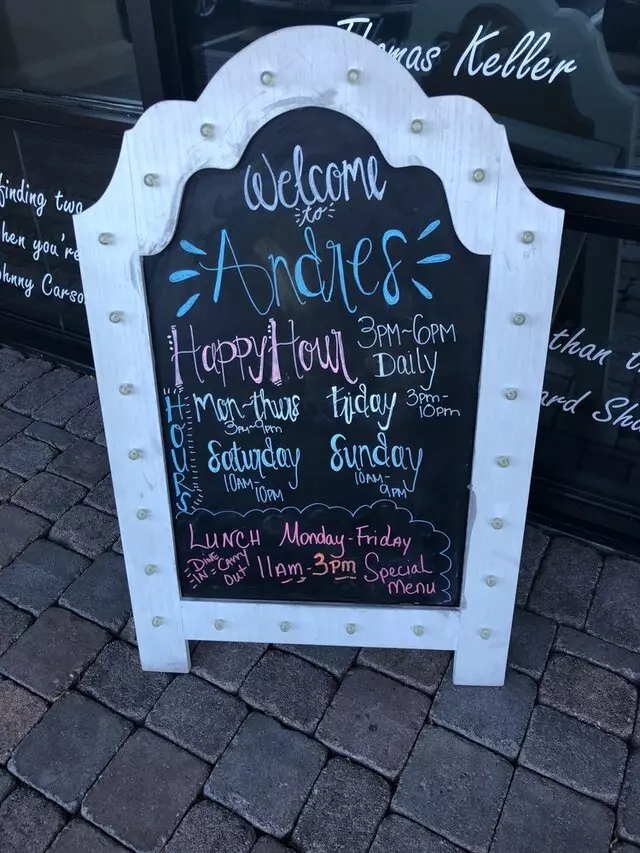 Thomas Keller
finding two
hen you're
ohnny Carso
than t
ard Sh
Welcome
to
Andres
Happy Hour 3PM-6PM
Daily
HOURS
Mon-thurs
3PM-9PM
Friday 3PM-
10PM
Saturday
10AM-
10PM
Sunday
10AM-
9PM
LUNCH Monday-Friday
DINE
IN = Carry
OUT
11AM-3pm Special
menu